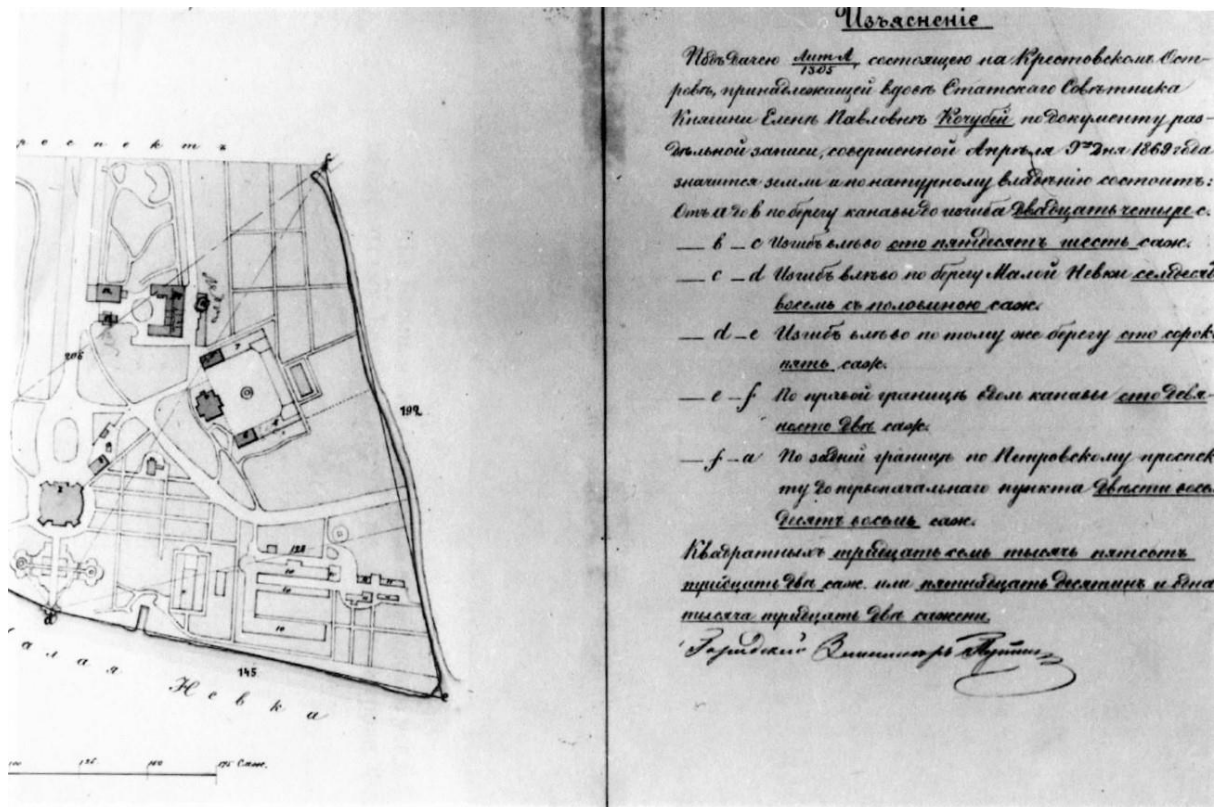 роспектъ
206
192
128
145
алая Невка
100 125 150 175 Саж.
Изъясненіе
Подъ дачею Лит. А/1305, состоящею на Крестовскомъ Ост-
ровѣ, принадлежащей вдовѣ Статскаго Совѣтника
Княгини Еленѣ Павловнѣ Кочубей по документу раз-
дѣльной записи, совершенной Апрѣля 9го дня 1869 года
значится земли и по натурному владѣнію состоитъ:
Отъ а до в по берегу канавы до изгиба двадцать четыре с.
— b – c Изгибъ влѣво сто пятдесятъ шесть саж.
— c – d Изгибъ влѣво по берегу Малой Невки семдесятъ
восемь съ половиною саж.
— d – e Изгибъ влѣво по тому же берегу сто сорокъ
пять саж.
— e – f По правой границѣ вдоль канавы сто девя-
носто два саж.
— f – a По задней границѣ по Петровскому проспек-
ту до первоначальнаго пункта двѣсти восем
десятъ восемь саж.
Квадратныхъ тридцать семь тысячъ пятсотъ
тридцать два саж. или пятнадцать десятинъ и одна
тысяча тридцать два сажени.
Городской